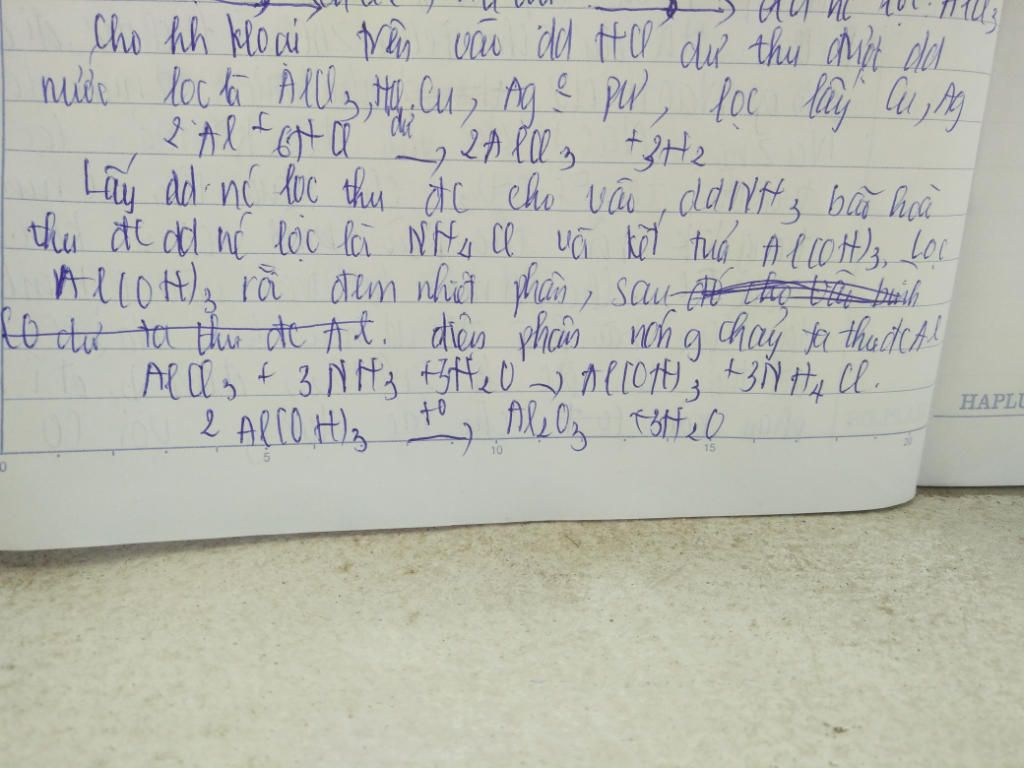 dd nc lọc: AlCl3
Cho hh kloại trên vào dd HCl dư thu được dd
nước lọc là AlCl3, HCl dư, Cu, Ag k pư, lọc lấy Cu, Ag
2Al + 6HCl → 2AlCl3 + 3H2
Lấy dd nc lọc thu đc cho vào dd NH3 bão hoà
thu đc dd nc lọc là NH4Cl và kết tuả Al(OH)3. Lọc
Al(OH)3 rồi đem nhiệt phân, sau đó cho vào bình
CO dư ta thu đc Al. điện phân nóng chảy ta thu đc Al
AlCl3 + 3NH3 + 3H2O → Al(OH)3 + 3NH4Cl.
2Al(OH)3 t0→ Al2O3 + 3H2O
HAPLU
0 5 10 15 20